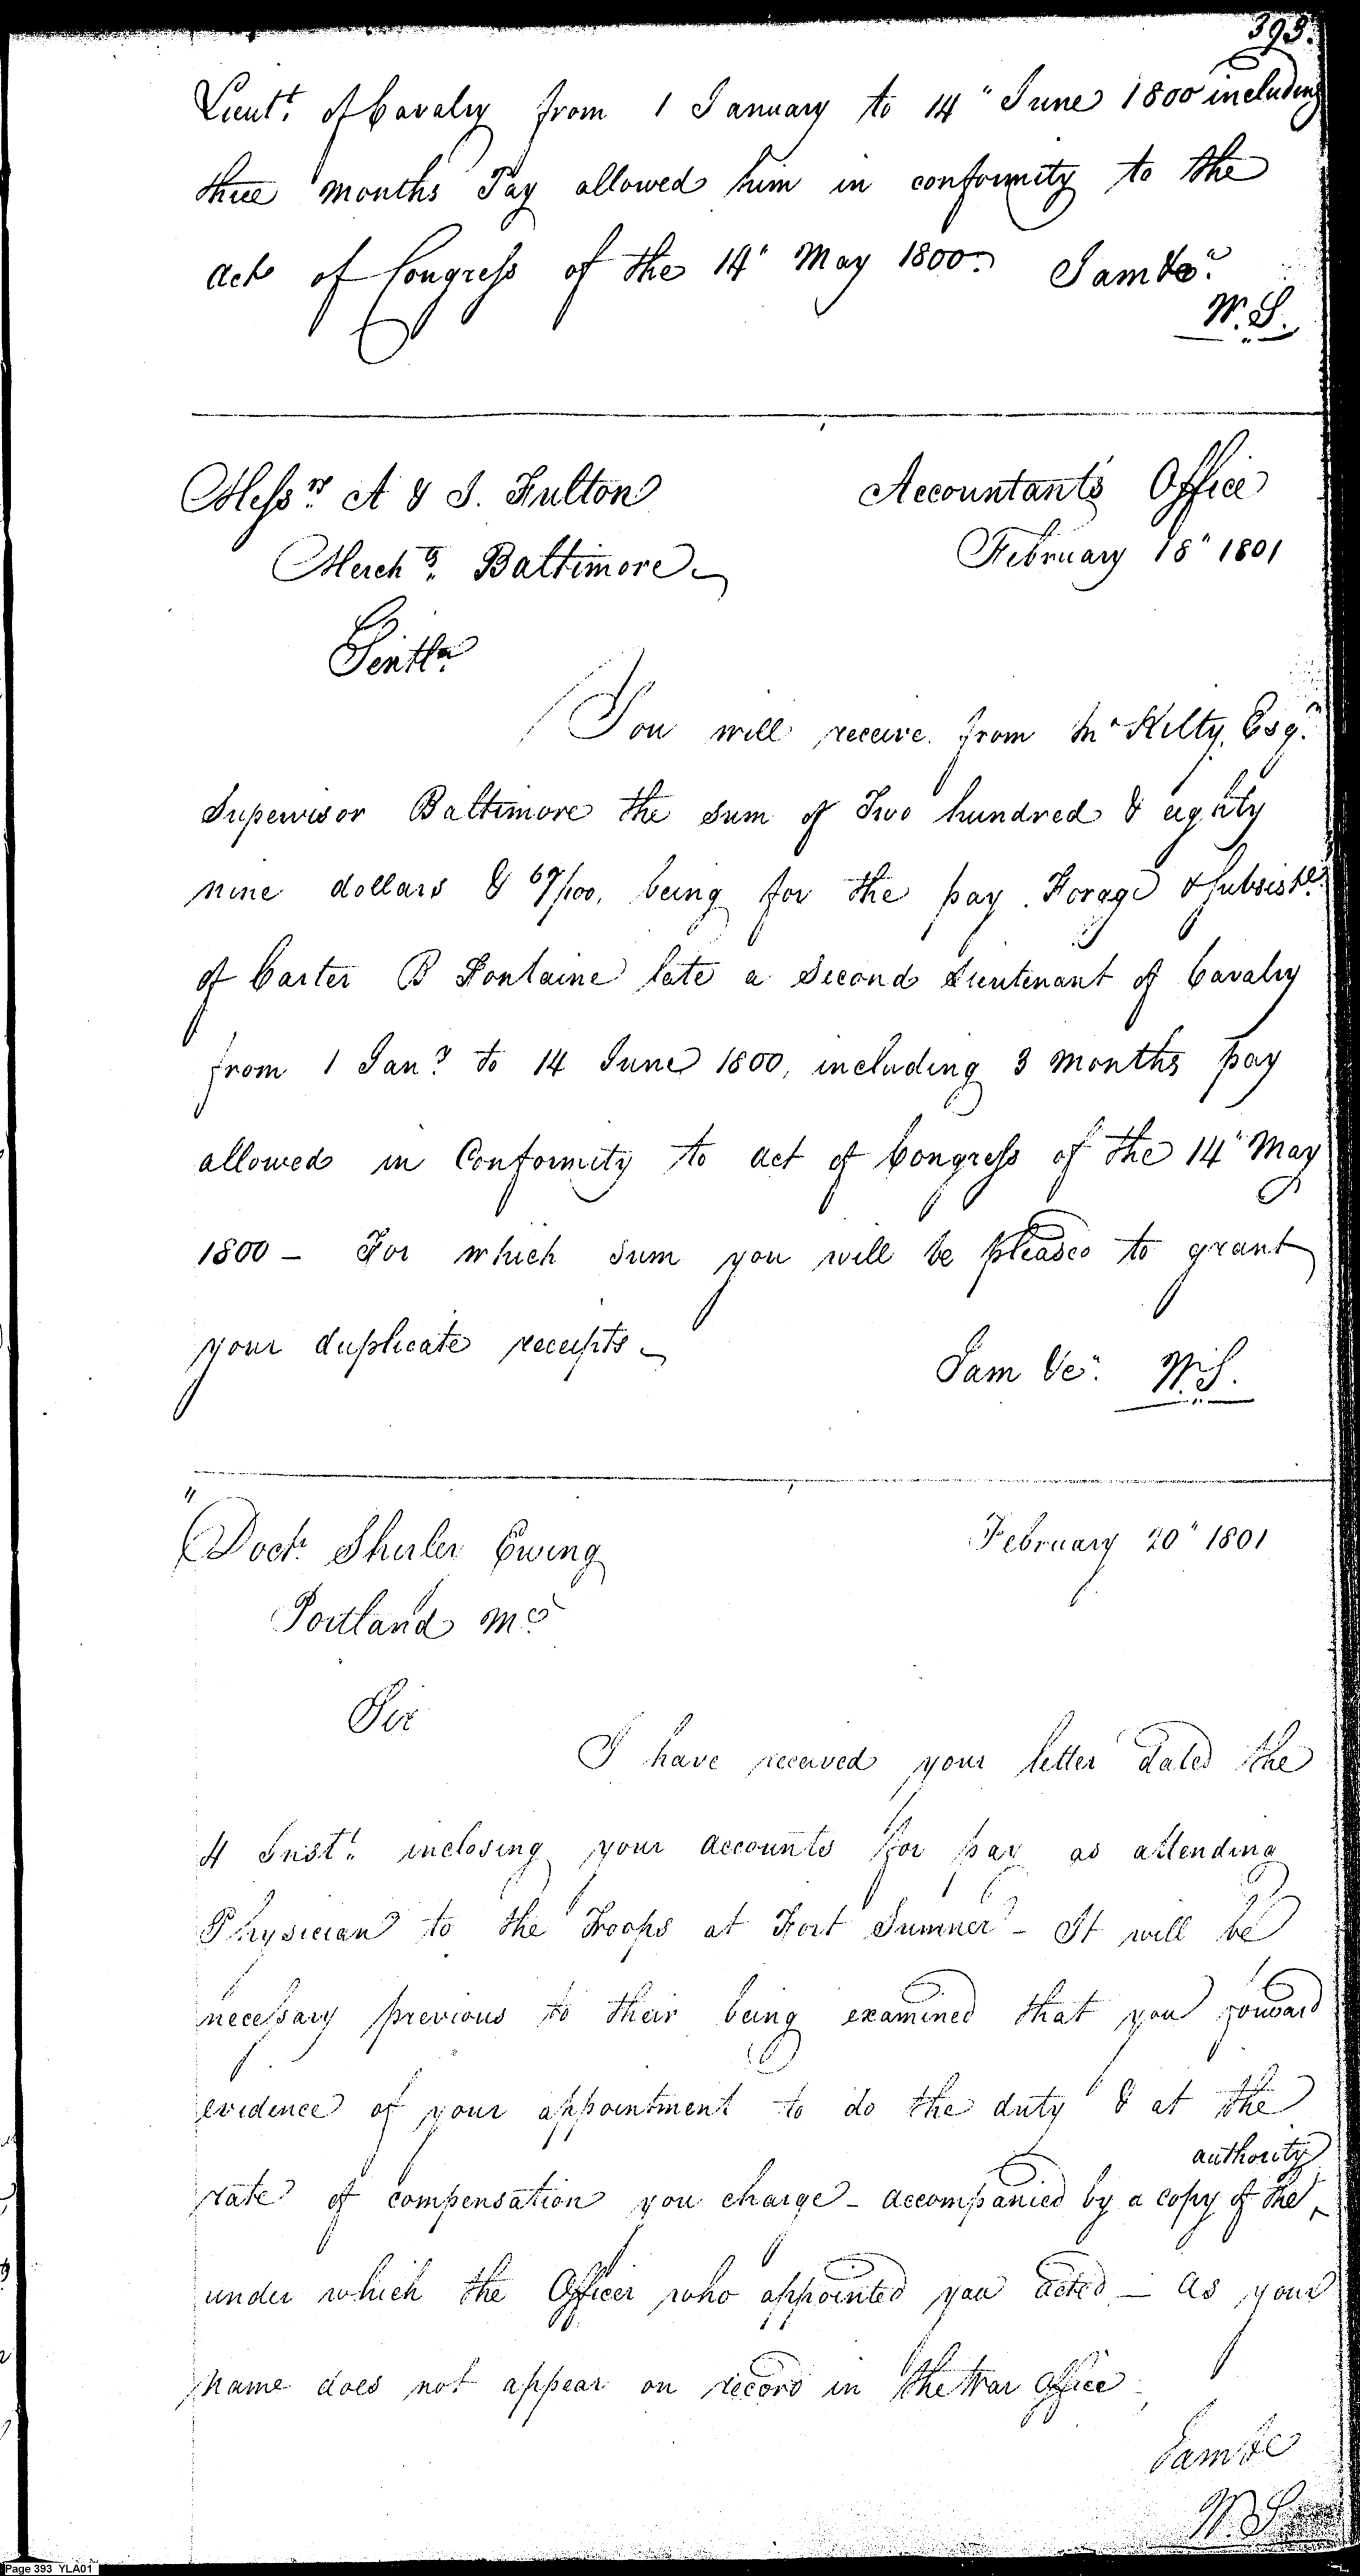 393.
Lieut.t of Cavalry from 1 January to 14" June 1800 including
three months Pay allowed him in conformity to the
act of Congress of the 14" May 1800. I am &c."
W.S.
Mess.rs A & J. Fulton
Accountant's Office
Merch.ts Baltimore
February 18" 1801
Gentln
You will receive from Kilty, Esq.r
Supervisor Baltimore the sum of Two hundred & eighty
nine dollars & 67/100, being for the pay. Forage & subsist.e
of Carter B Fontaine late a Second Lieutenant of Cavalry
from 1 Jan.y to 14 June 1800, including 3 months pay
allowed in Conformity to act of Congress of the 14" May
1800 - For which sum you will be pleased to grant
your duplicate receipts
I am &c". W.S.
Doct. Shirler Ewing
February 20" 1801
Portland
Sir
I have received your letter dated the
4 Inst.t inclosing your accounts for pay as attending
Physician to the Troops at Fort Sumner - It will be
necessary previous to their being examined that you forward
evidence of your appointment to do the duty & at the
authority
rate of compensation you charge - accompanied by a copy of the ^
under which the Officer who appointed you acted - as your
name does not appear on record in the War Office -
I am &c
W.S
Page 393 YLA01